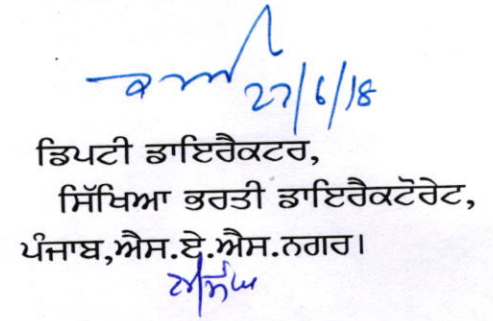 27/6/18
ਡਿਪਟੀ ਡਾਇਰੈਕਟਰ,
ਸਿੱਖਿਆ ਭਰਤੀ ਡਾਇਰੈਕਟੋਰੇਟ,
ਪੰਜਾਬ,ਐਸ.ਏ.ਐਸ.ਨਗਰ।